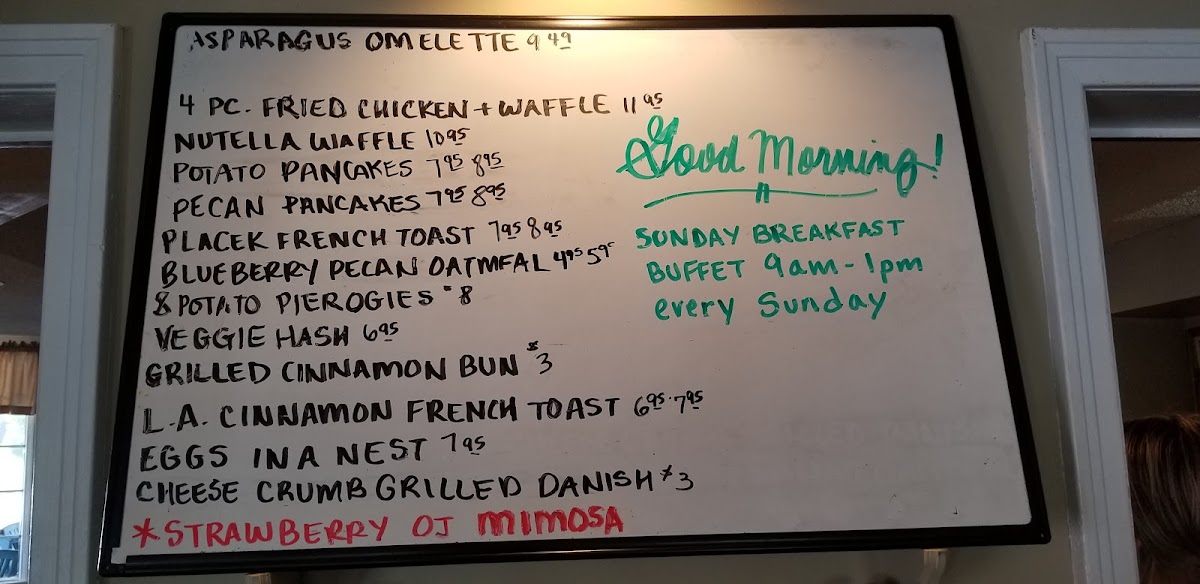 ASPARAGUS OMELETTE 9 49
4 PC. FRIED CHICKEN + WAFFLE 11 95
NUTELLA WAFFLE 10 95
POTATO PANCAKES 7 95 8 95
PECAN PANCAKES 7 95 8 95
PLACEK FRENCH TOAST 7 95 8 95
BLUEBERRY PECAN OATMEAL 4 95
8 POTATO PIEROGIES $8
VEGGIE HASH 6 95
GRILLED CINNAMON BUN $3
L.A. CINNAMON FRENCH TOAST 6 95 · 7 95
EGGS IN A NEST 7 95
CHEESE CRUMB GRILLED DANISH $3
*STRAWBERRY OJ MIMOSA
Good Morning!
SUNDAY BREAKFAST
BUFFET 9am - 1pm
every Sunday